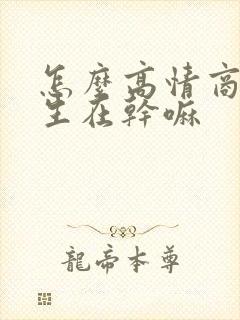 怎麼高情商
生在幹嘛
龍帝本尊